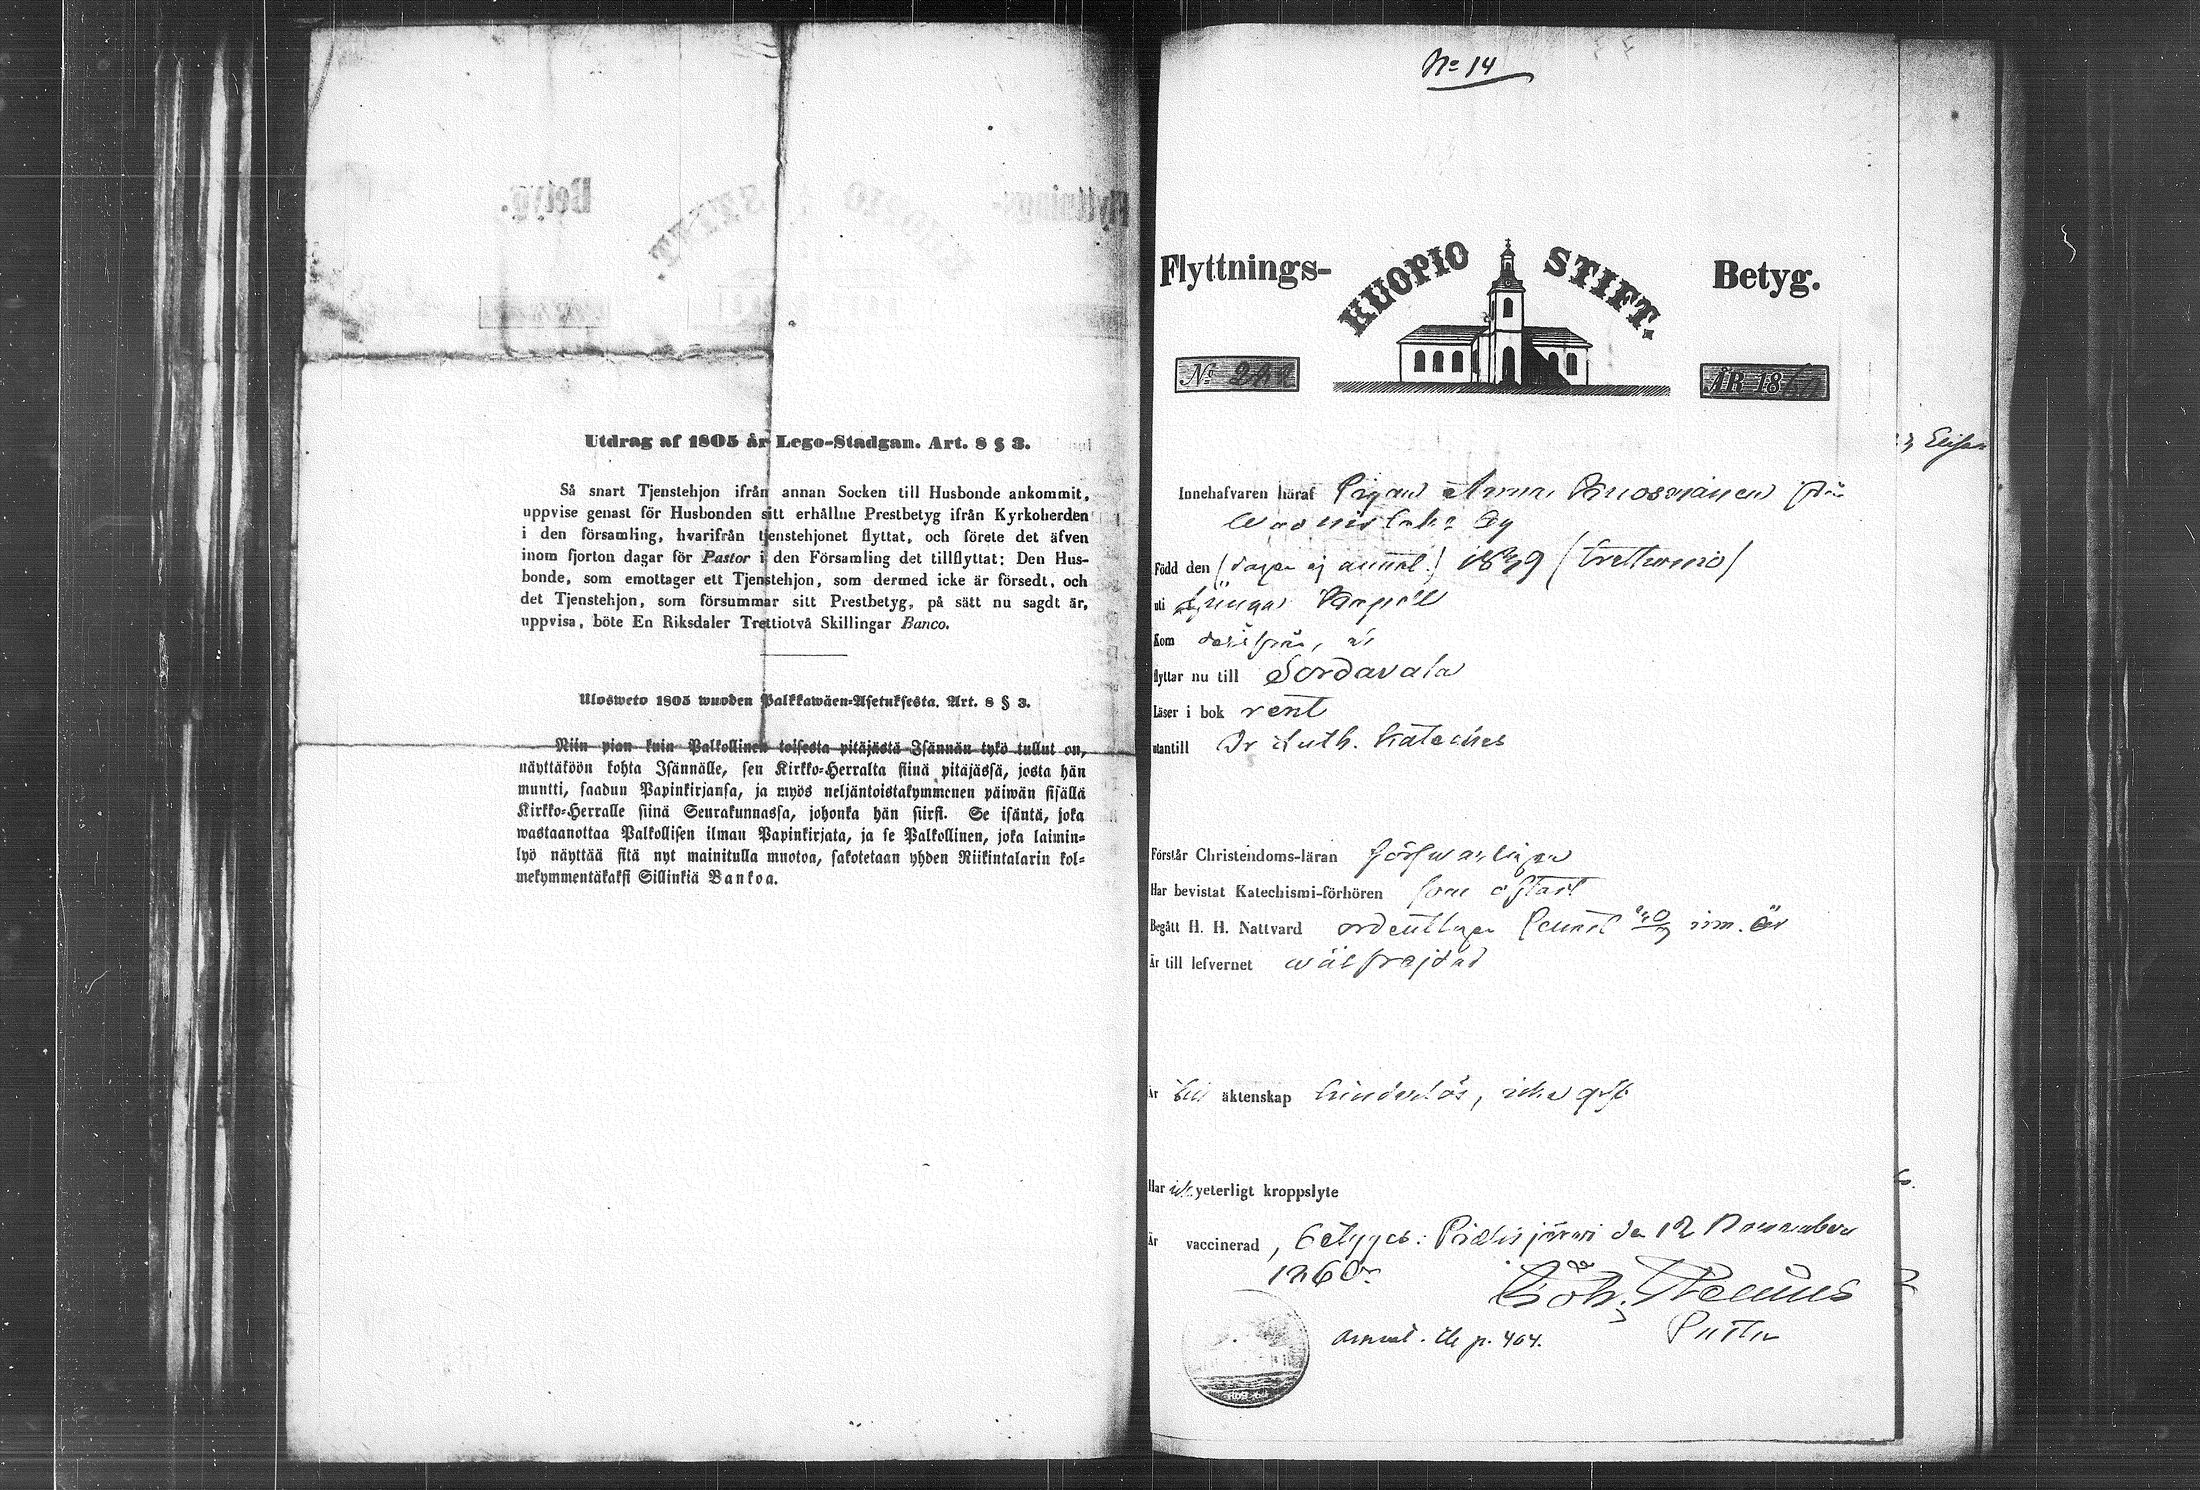 Utdrag af 1805 år Lego-Stadgan. Art. 8 § 3.
Så snart Tjenstehjon ifrån annan Socken till Husbonde ankommit,
uppvise genast för Husbonden sitt erhållne Prestbetyg ifrån Kyrkoherden
i den församling, hvarifrån tjenstehjonet flyttat, och förete det äfven
inom fjorton dagar för Pastor i den Församling det tillflyttat: Den Hus-
bonde, som emottager ett Tjenstehjon, som dermed icke är försedt, och
det Tjenstehjon, som försummar sitt Prestbetyg, på sätt nu sagdt är,
uppvisa, böte En Riksdaler Trettiotvå Skillingar Banco.
Ulosweto 1805 wuoden Palkkawäen-Asetuksesta. Art. 8 § 3.
Niin pian kuin Palkollinen toisesta pitäjästä Isännän tykö tullut on,
näyttäköön kohta Isännälle, sen Kirkko-Herralta siinä pitäjässä, josta hän
muutti, saadun Papinkirjansa, ja myös neljäntoistakymmenen päiwän sisällä
Kirkko-Herralle siinä Seurakunnassa, johonka hän siirsi. Se isäntä, joka
wastaanottaa Palkollisen ilman Papinkirjata, ja se Palkollinen, joka laimin-
lyö näyttää sitä nyt mainitulla muotoa, sakotetaan yhden Riikintalarin kol-
mekymmentäkaksi Sillinkiä Bankoa.
No 14
Flyttnings- KUOPIO STIFT. Betyg.
No ÅR 18
Innehafvaren häraf Pigan Anna
by
Född den (dagen ej annot.) 1839 (trettionio)
uti
Kom
flyttar nu till Sordavala
Läser i bok rent
utantill Dr Luth. Kateches
Förstår Christendoms-läran försvarligen
Har bevistat Katechismi-förhören som oftast
Begått H. H. Nattvard ordentligen senast
Är till lefvernet wälfrejdad
Är till äktenskap hinderlös, icke gift
Har ick yeterligt kroppslyte
Är vaccinerad, betygas: Pielisjärvi den 12 November
1860.
Joh. Stenius
Pastor
Annot. p. 404.